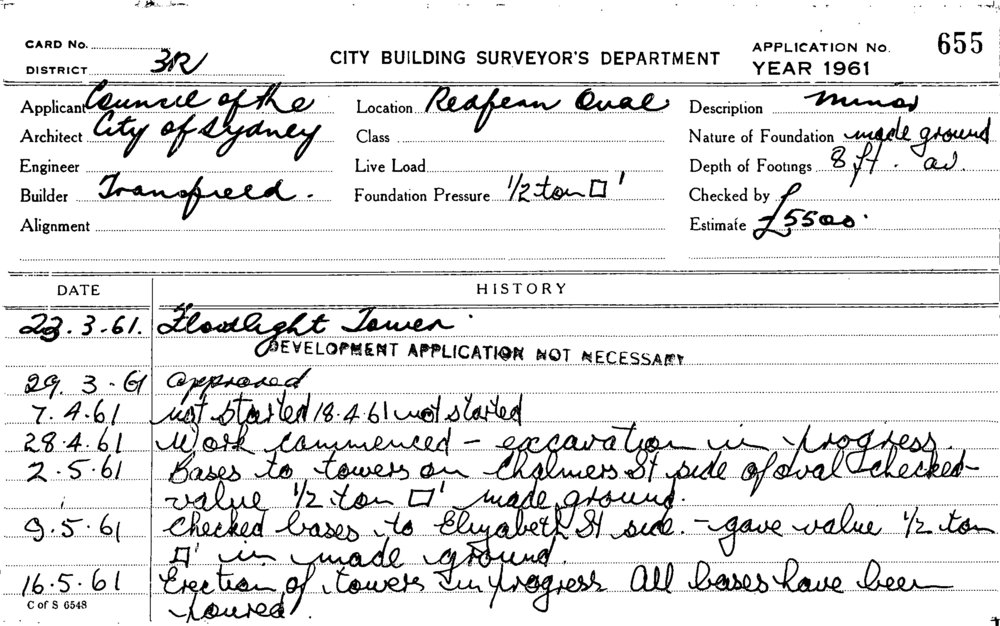 CARD No.
DISTRICT 3R
CITY BUILDING SURVEYOR'S DEPARTMENT
APPLICATION No. 655
YEAR 1961
Applicant Council of the
Architect City of Sydney
Engineer
Builder Transfield.
Alignment
Location Redfern Oval
Class
Live Load
Foundation Pressure 1/2 ton □'
Description Minor
Nature of Foundation made ground
Depth of Footings 8 ft. av.
Checked by
Estimate £5500.
DATE HISTORY
23.3.61. Floodlight Tower.
DEVELOPMENT APPLICATION NOT NECESSARY
29.3.61 approved
7.4.61 not started 18.4.61 not started
28.4.61 Work commenced - excavation in progress.
2.5.61 Bases to towers on Chalmers St side of oval checked-
value 1/2 ton □' made ground.
9.5.61 Checked bases to Elizabeth St side. - gave value 1/2 ton
□' in made ground.
16.5.61 Erection of towers in progress All bases have been
C of S 6548 poured.